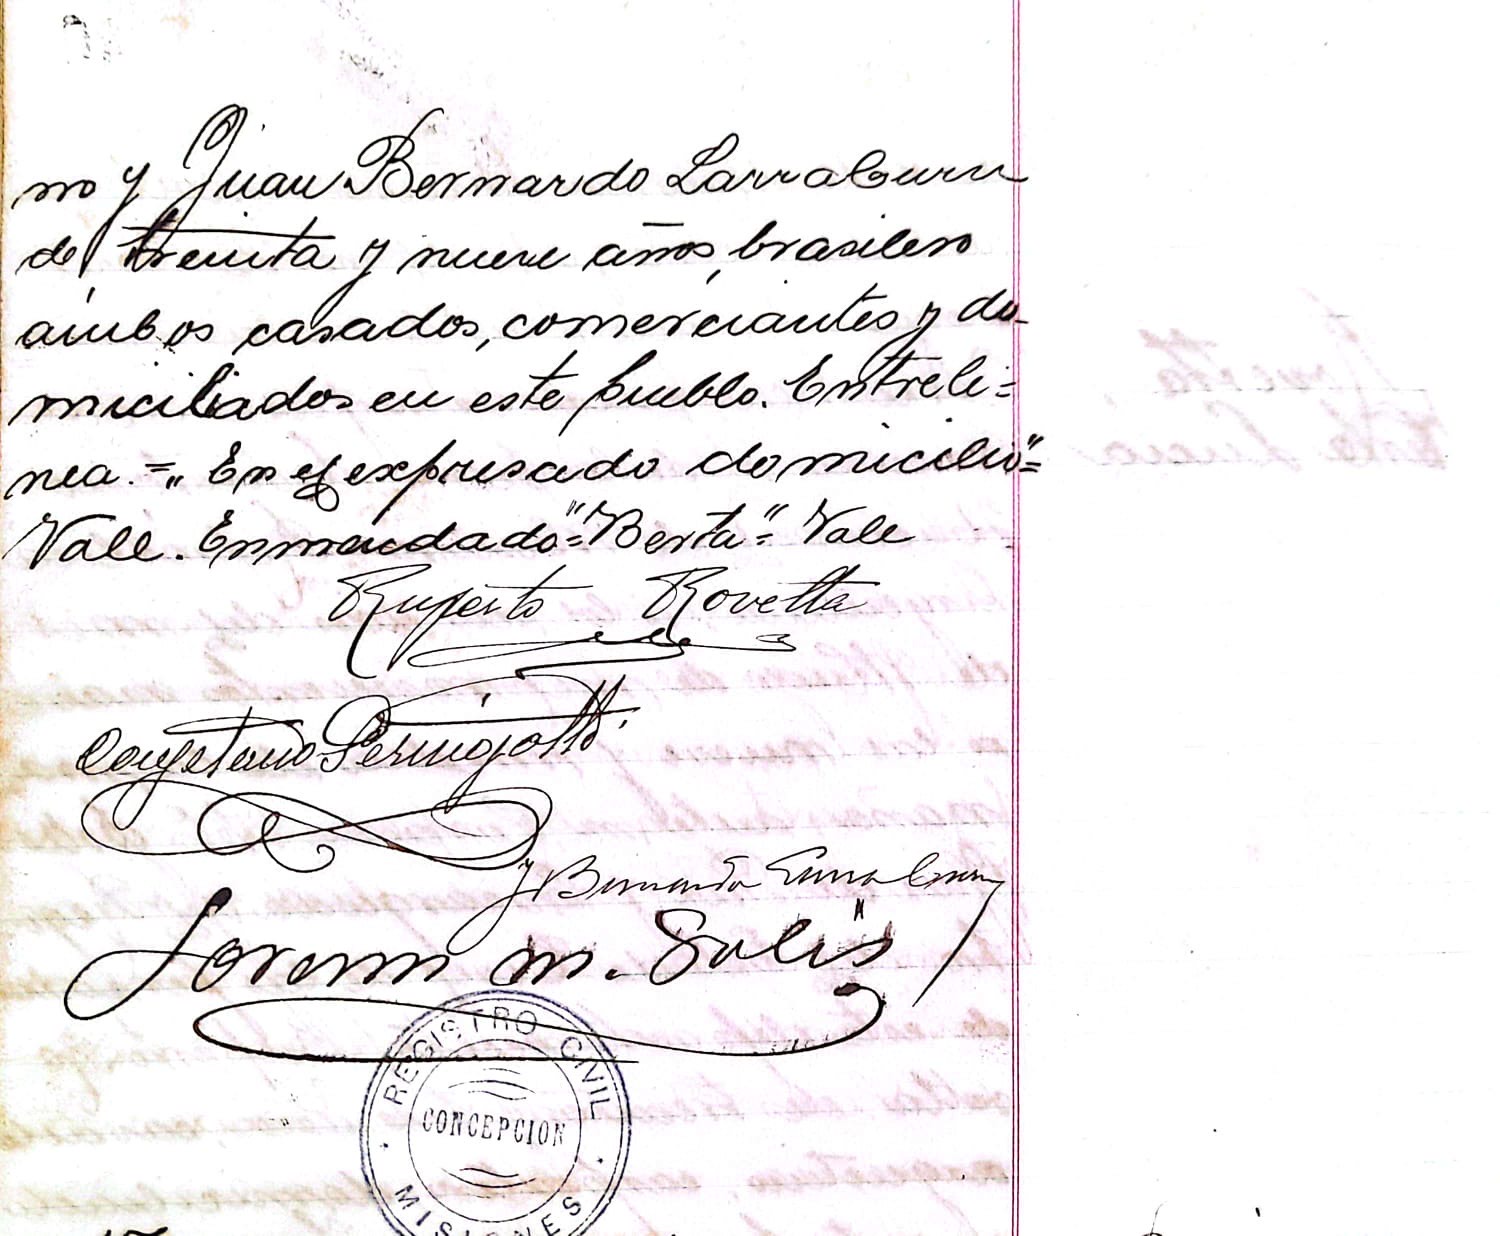 no y Juan Bernardo Larraburu
de treinta y nueve años, brasilero
ambos casados, comerciantes y do-
miciliados en este pueblo. Entreli=
nea.=„ En el expresado domicilio"=
Vale. Enmendado="Berta"= Vale
Ruperto Rovetta
Cayetano Perugotti
J Bernardo Larraburu
Lorenzo M. Solis
REGISTRO CIVIL
CONCEPCION
MISIONES